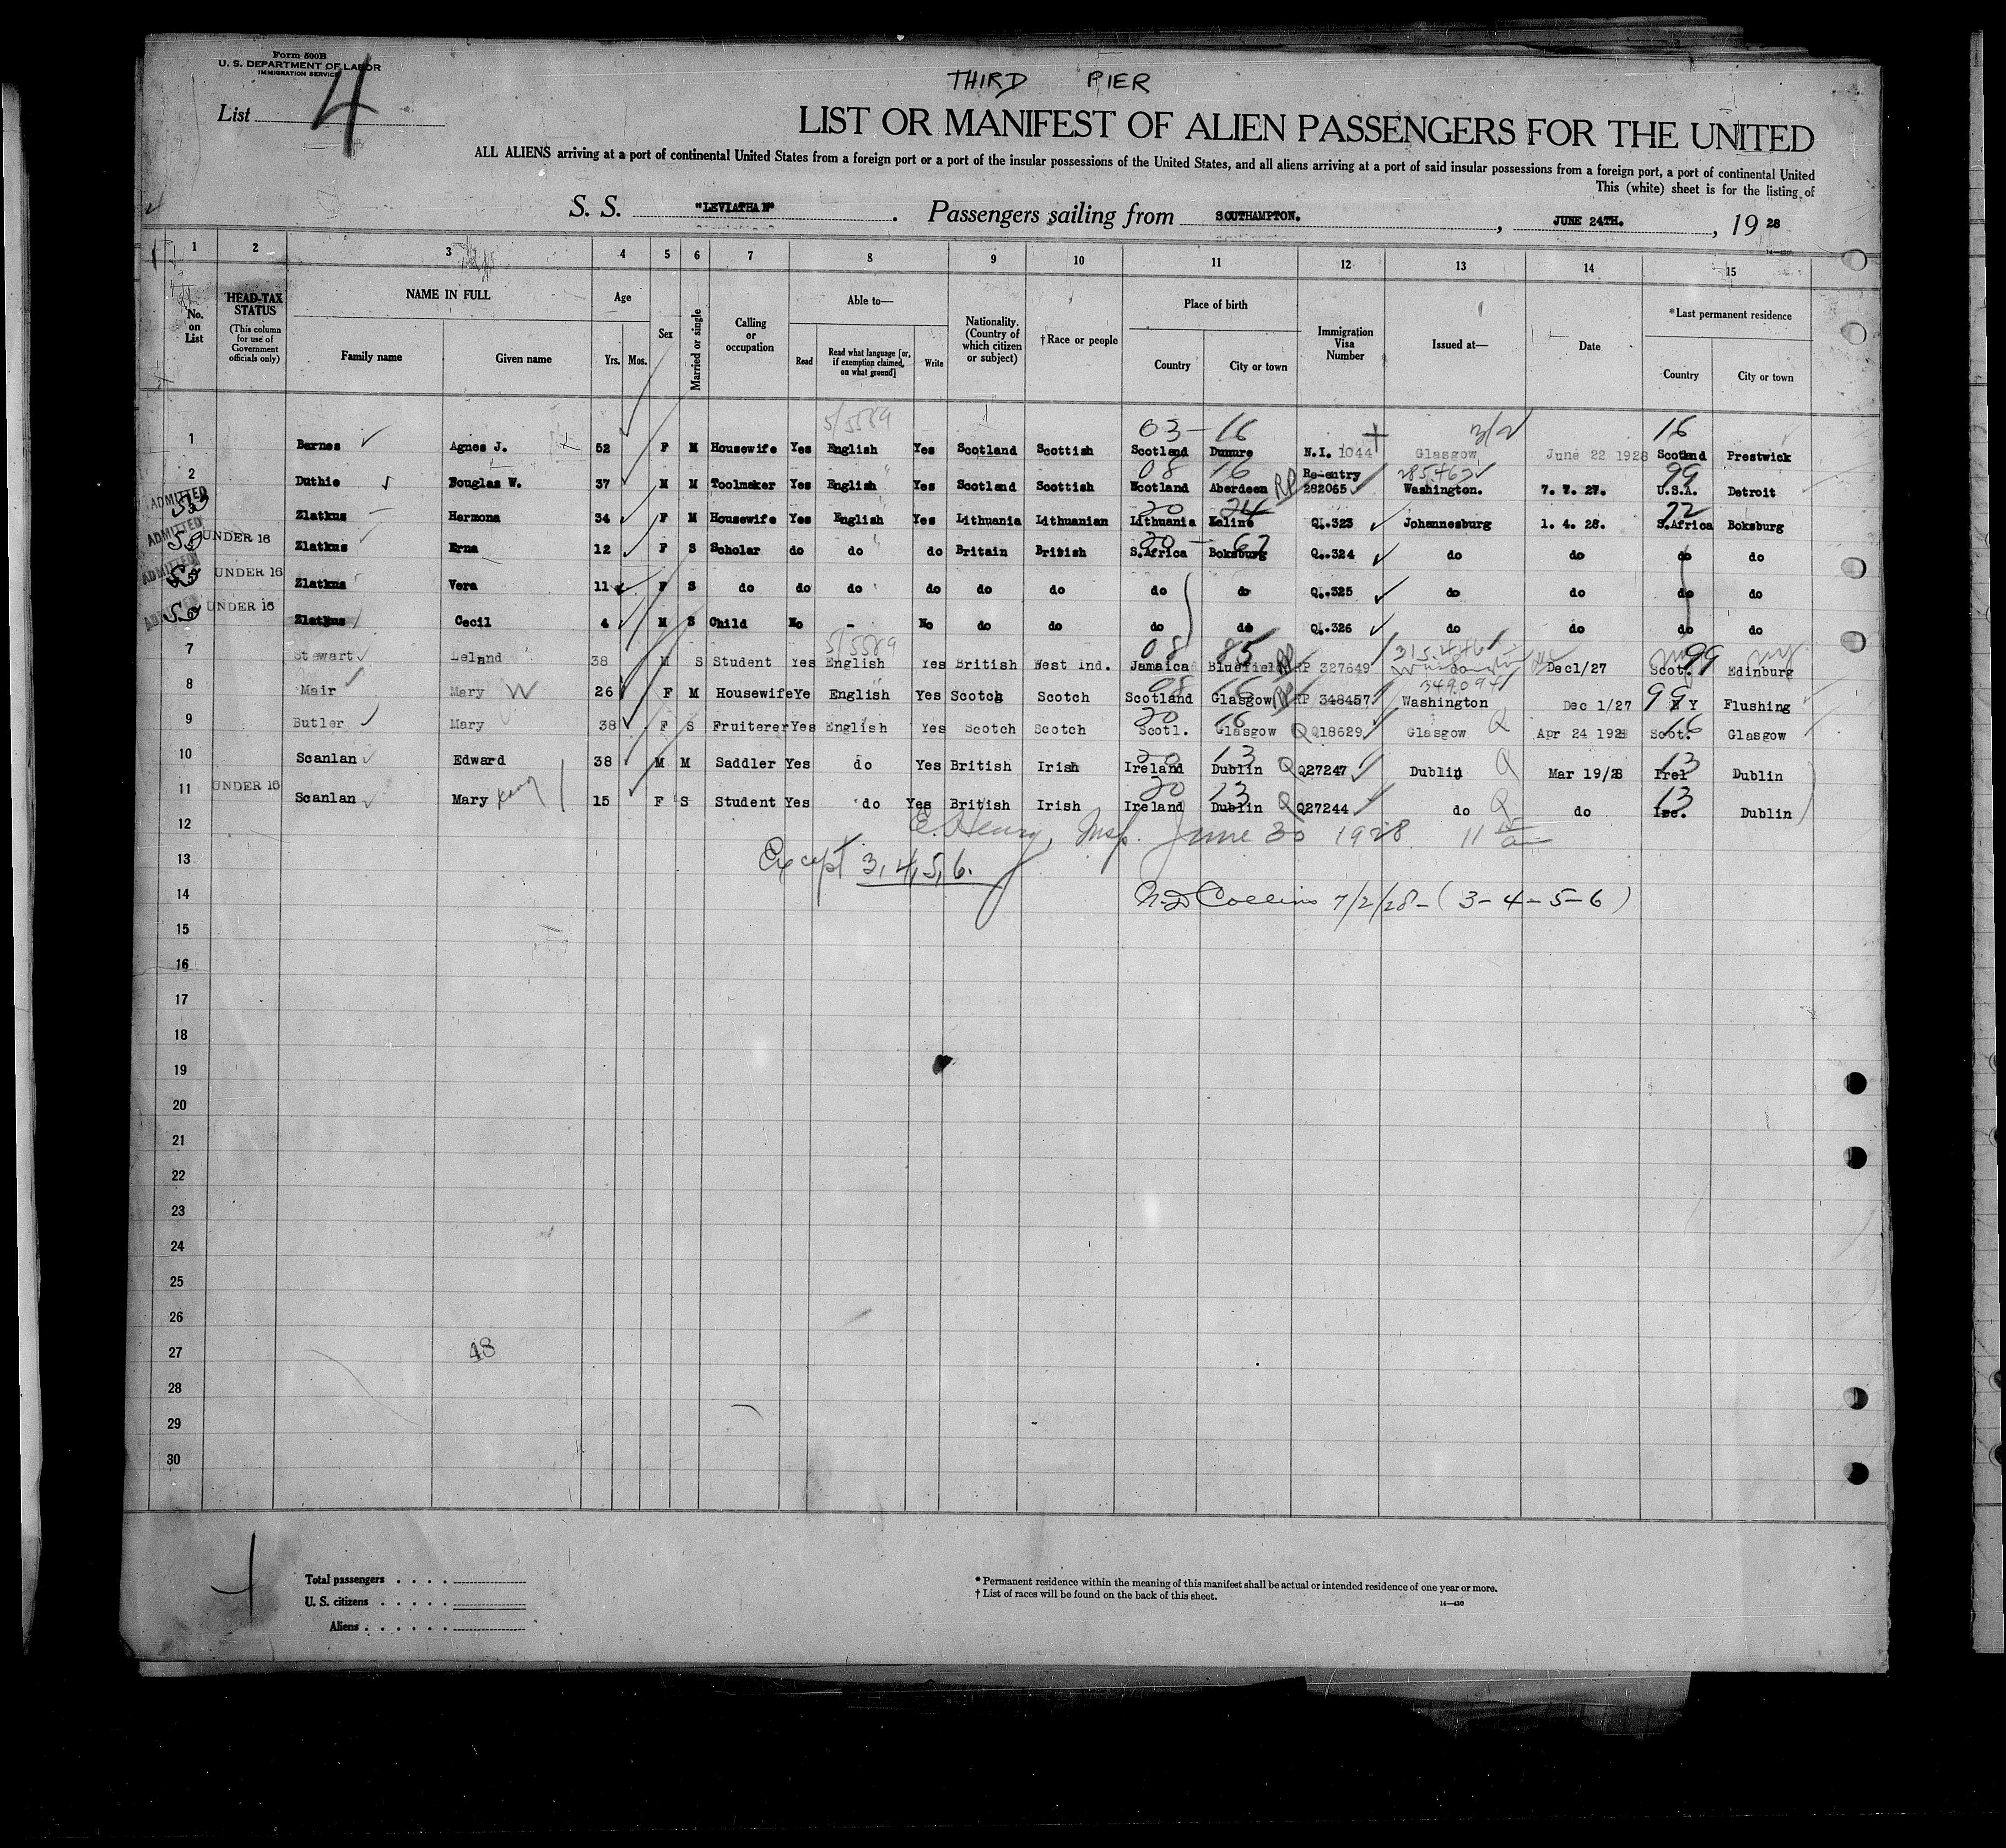 Form 500B
U. S. DEPARTMENT OF LABOR
IMMIGRATION SERVICE
THIRD PIER
List 4
LIST OR MANIFEST OF ALIEN PASSENGERS FOR THE UNITED
ALL ALIENS arriving at a port of continental United States from a foreign port or a port of the insular possessions of the United States, and all aliens arriving at a port of said insular possessions from a foreign port, a port of continental United
This (white) sheet is for the listing of
S. S. "LEVIATHAN" . Passengers sailing from SOUTHAMPTON. , JUNE 24TH. , 19 28
1 2 3 4 5 6 7 8 9 10 11 12 13 14 15
No. on List
HEAD-TAX STATUS
(This column for use of Government officials only)
NAME IN FULL
Family name Given name
Age
Yrs. Mos.
Sex
Married or single
Calling or occupation
Able to—
Read Read what language [or, if exemption claimed, on what ground] Write
Nationality. (Country of which citizen or subject)
†Race or people
Place of birth
Country City or town
Immigration Visa Number
Issued at—
Date
*Last permanent residence
Country City or town
5/5589 03-16 16
1 Barnes Agnes J. 52 F M Housewife Yes English Yes Scotland Scottish Scotland Dunure N.I. 1044 Glasgow June 22 1928 Scotland Prestwick
08 16 Re-entry 285463 99
2 Duthie Douglas W. 37 M M Toolmaker Yes English Yes Scotland Scottish Scotland Aberdeen RP 282065 Washington. 7. 7. 27. U.S.A. Detroit
20 24 72
ADMITTED 3 Zlatkus Hermona 34 F M Housewife Yes English Yes Lithuania Lithuanian Lithuania Kaline Q.323 Johannesburg 1. 4. 28. S.Africa Boksburg
20 - 67
ADMITTED UNDER 16 Zlatkus Erna 12 F S Scholar do do do Britain British S.Africa Boksburg Q.324 do do do do
ADMITTED UNDER 16 Zlatkus Vera 11 F S do do do do do do do do Q.325 do do do do
ADMITTED UNDER 16 Zlatkus Cecil 4 M S Child No - No do do do do Q.326 do do do do
5/5589 08 85 315446 99
7 Stewart Leland 38 M S Student Yes English Yes British West Ind. Jamaica Bluefield RP RP 327649 Washington Dec1/27 Scot. Edinburg
08 16 349094 99
8 Mair Mary W 26 F M Housewife Ye English Yes Scotch Scotch Scotland Glasgow RP RP 348457 Washington Dec 1/27 N Y Flushing
20 16 16
9 Butler Mary 38 F S Fruiterer Yes English Yes Scotch Scotch Scotl. Glasgow Q Q18629 Glasgow Q Apr 24 1928 Scot. Glasgow
20 13 13
10 Scanlan Edward 38 M M Saddler Yes do Yes British Irish Ireland Dublin Q Q27247 Dublin Q Mar 19/28 Irel Dublin
20 13 13
UNDER 16 11 Scanlan Mary 15 F S Student Yes do Yes British Irish Ireland Dublin Q Q27244 do Q do Ire. Dublin
12 E. Henry, Insp. June 30 1928 11
13 Except 3, 4, 5, 6.
14 Collins 7/2/28 - (3-4-5-6)
15
16
17
18
19
20
21
22
23
24
25
26
27 48
28
29
30
Total passengers
U. S. citizens
Aliens
* Permanent residence within the meaning of this manifest shall be actual or intended residence of one year or more.
† List of races will be found on the back of this sheet.
14—430